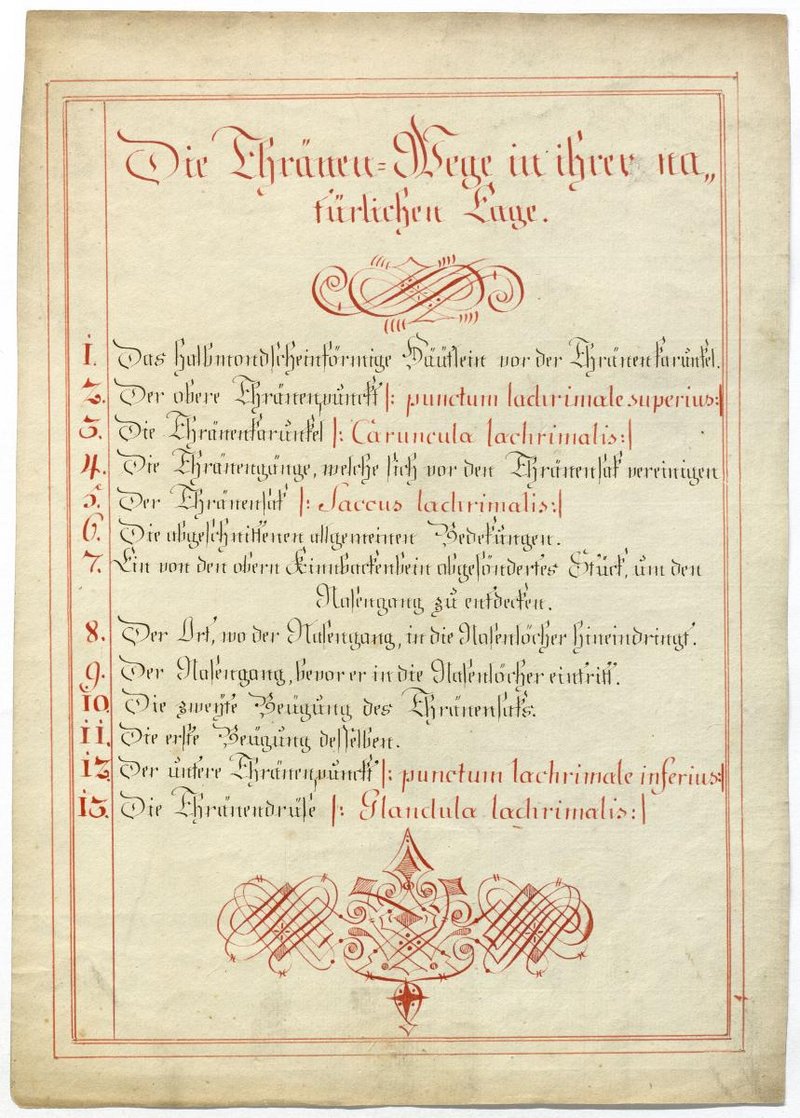 Die Thränen=Wege in ihrer na„
türlichen Lage.
1. Das halbmondscheinförmige Häutlein vor der Thränenkarunkel.
2. Der obere Thränenpunckt |: punctum lachrimale superius:|
3. Die Thränenkarunkel |: Caruncula lachrimalis:|
4. Die Thränengänge, welche sich vor den Thränensak vereinigen
5. Der Thränensak |: Saccus lachrimalis:|
6. Die abgeschnittenen allgemeinen Bedekungen.
7. Ein von den obern Kinnbackenbein abgesöndertes Stück, um den
Nasengang zu entdecken.
8. Der Ort, wo der Nasengang, in die Nasenlöcher hineindringt.
9. Der Nasengang, bevor er in die Nasenlöcher eintritt.
10. Die zweyte Beügung des Thränensaks.
11. Die erste Beügung desselben.
12. Der untere Thränenpunckt |: punctum lachrimale inferius:|
13. Die Thränendrüse |: Glandula lachrimalis:|